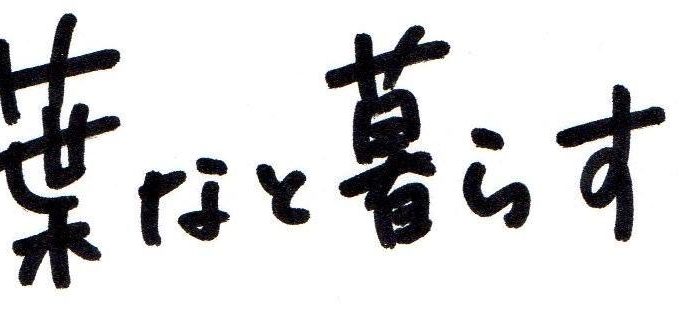 葉なと暮らす